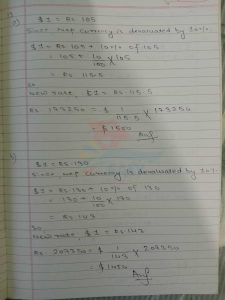 a) $1 = Rs 105
Since, nep currency is devaluated by 10%.
$1 = Rs 105 + 10% of 105
= 105 + 10/100 × 105
= Rs 115.5
So
New rate, $1 = Rs 115.5
Rs 173250 = $ 1/115.5 × 173250
= $1500
Ans
b)
$1 = Rs. 130
Since, nep currency is devaluated by 10%.
$1 = Rs. 130 + 10% of 130
= 130 + 10/100 × 130
= Rs. 143
So,
New rate, $1 = Rs. 143
Rs 207350 = $ 1/143 × 207350
= $1450
Ans